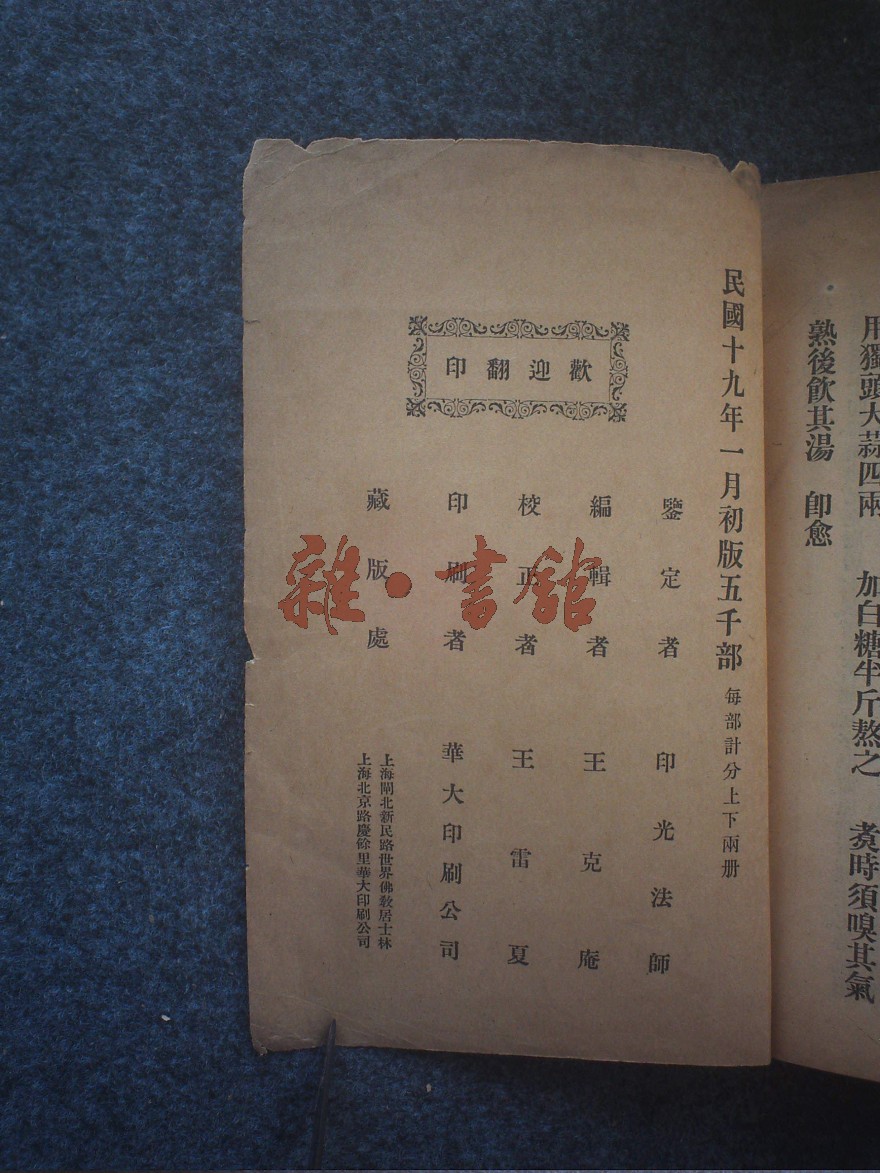 用獨頭大蒜四兩　加白糖半斤熬之　煑時須嗅其氣
熟後飲其湯　卽愈
民國十九年一月初版五千部 每部計分上下兩册
歡迎翻印
鑒定者　印光法師
編輯者　王克庵
校正者　王雷夏
印刷者　華大印刷公司
藏版處　上海閘北新民路世界佛敎居士林
上海北京路慶餘里華大印刷公司
雜·書舘